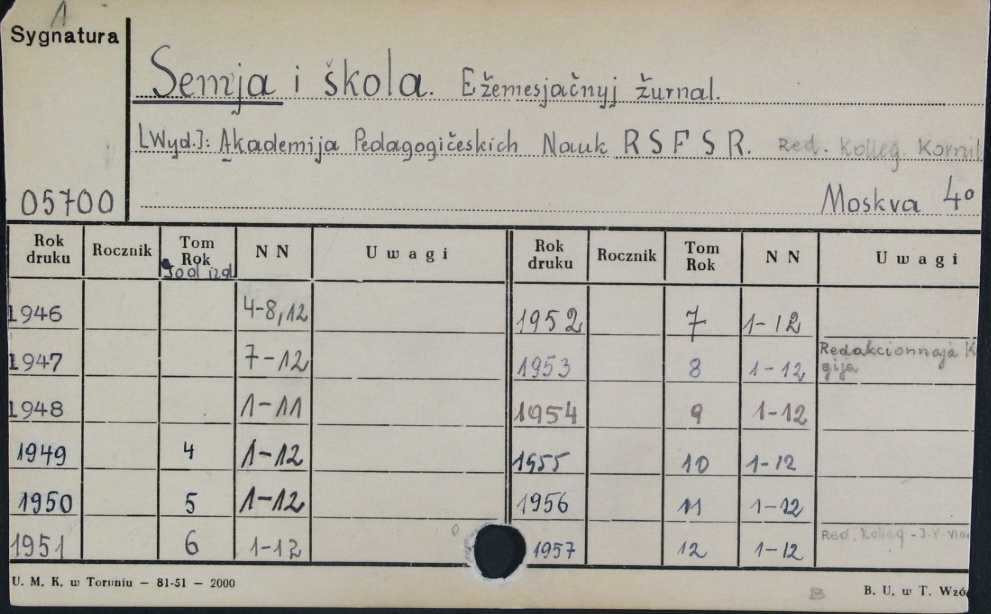 1
Sygnatura
Semja i škola. Ežemesjačnyj žurnal.
[Wyd.]: Akademija Pedagogičeskich Nauk RSFSR. Red. Kolleg. Kornil
05700
Moskva 4°
Rok druku Rocznik Tom Rok NN Uwagi Rok druku Rocznik Tom Rok NN Uwagi
God izd
1946 4-8,12 1952 7 1-12
1947 7-12 1953 8 1-12 Redakcionnaja K
gija
1948 1-11 1954 9 1-12
1949 4 1-12 1955 10 1-12
1950 5 1-12 1956 11 1-12
1951 6 1-12 1957 12 1-12 Red. Kolleg
U. M. K. w Toruniu — 81-51 — 2000
B
B. U. w T. Wzó